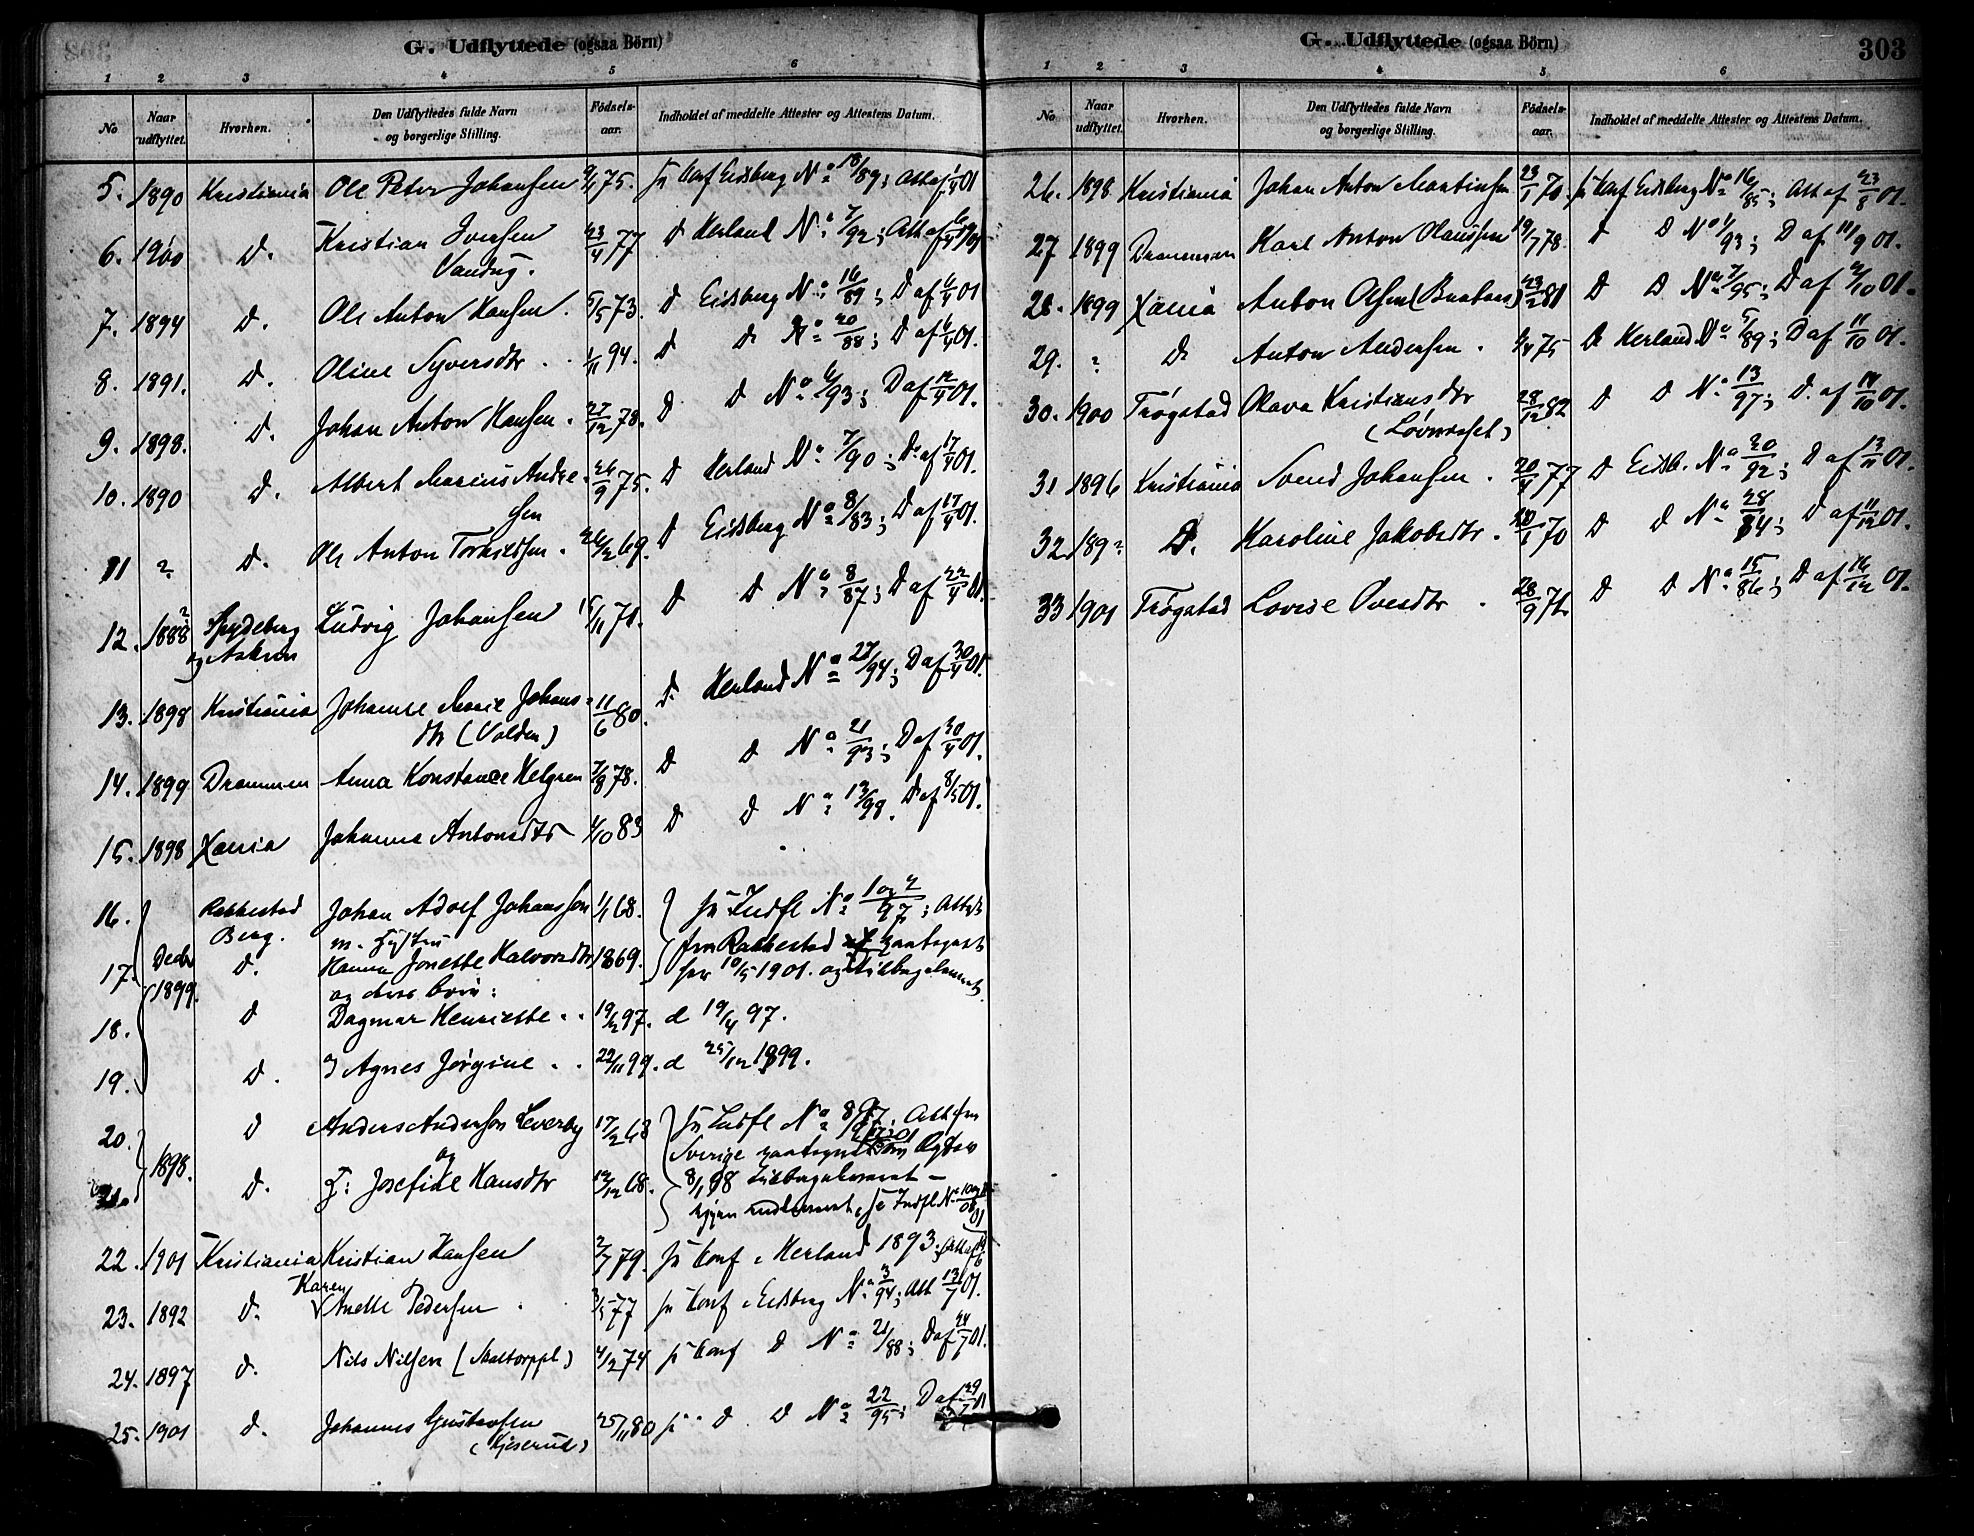 G. Udflyttede (ogsaa Börn)
1 2 3 4 5 6
No Naar udflyttet. Hvorhen. Den Udflyttedes fulde Navn og borgerlige Stilling. Födsels-aar. Indholdet af meddelte Attester og Attestens Datum.
5. 1890 Kristiania Ole Peter Johansen 75. Conf Eidsberg No 18/89; Att af 01
6. 1900 D. Kristian Iversen 23/4 77 D Herland No 7/92; Att af
7. 1894 D. Ole Anton Hansen. 5/5 73. D Eidsberg No 16/89; D af 01
8. 1891. D. Oline Syversdtr. 94. D D No 20/88; D af 01.
9. 1898. D. Johan Anton Hansen. 27/12 78. D D No 6/93; D af 01.
10. 1890 D. Albert Marius Andre- 26/9 75. D Herland No 7/90; D af 17/4 01.
sen
11 ? D. Ole Anton Torkildsen. 26/2 69. D Eidsberg No 8/83; D af 17/4 01.
12. 1888? Spydeberg Ludvig Johansen 71. D D No 8/87; D af 22/4 01.
og Askim
13. 1898 Kristiania Johanne Marie Johans- 11/6 80. D Herland No 27/94; D af 30/4 01.
dtr (Volden)
14. 1899 Drammen Anna Konstance Helgren 7/8 78. D D No 21/93; D af 30/4 01.
15. 1898 Xania Johanne Antonsdtr 4/10 83 D D No 13/98. D af 8/5 01.
16. Rakkestad Johan Adolf Johansson 1/1 68. Indfl No
Berg. m. Hustru
17. Decbr 1899. D. Hanna Jonette Halvorsdtr 1869. fra Rakkestad
og deres Børn:
18. D Dagmar Henriette 19/2 97. d 19/4 97.
19. D. Agnes Jørgine 22/11 99. d 25/12 1899.
20. 1898. D Anders Anderson Leverby 17/2 68 Indfl No
og Sverige
21. D. H: Josefine Hansdtr 12/12 68. 8/1 98
22. 1901 Kristiania Kristian Hansen 2/7 79. Conf i Herland 1893.
23. 1892 D. Karen Anette Pedersen 3/5 77 Conf i Eidsberg No 3/94; Att 13/7 01.
24. 1897 D. Nils Nilsen 4/2 74 Conf D No 21/88; D af 24/7 01.
25. 1901 D. Johannes Gustavsen 25/11 80 D D No 22/95; D af 29/7 01
(Kjeserud)
G. Udflyttede (ogsaa Börn) 303
1 2 3 4 5 6
No Naar udflyttet. Hvorhen. Den Udflyttedes fulde Navn og borgerlige Stilling. Födsels-aar. Indholdet af meddelte Attester og Attestens Datum.
26. 1898 Kristiania Johan Anton Martinsen 23/1 70. Conf Eidsberg No 16/85; Att af 23/8 01.
27 1899 Drammen Karl Anton Olaussen 19/7 78. D D No 1/93; D af 11/9 01.
28. 1899 Xania Anton Olsen (Buaas) 23/2 81 D D No 7/95; D af 2/10 01.
29. ? D Anton Andersen. 75 D Herland No 5/89; D af 11/10 01.
30. 1900 Trøgstad Olava Kristiansdtr 28/12 82 D D No 13/97; D. af 14/10 01.
31 1896 Kristiania Svend Johansen. 20/4 77 D Eidsb. No 20/92; D af 13/11 01.
32 189? D. Karoline Jakobsdtr. 20/1 70 D D No 28/84; D af 11/12 01.
33 1901 Trøgstad Lovise Ovesdtr. 28/9 71. D D No 15/86; D af 16/12 01.